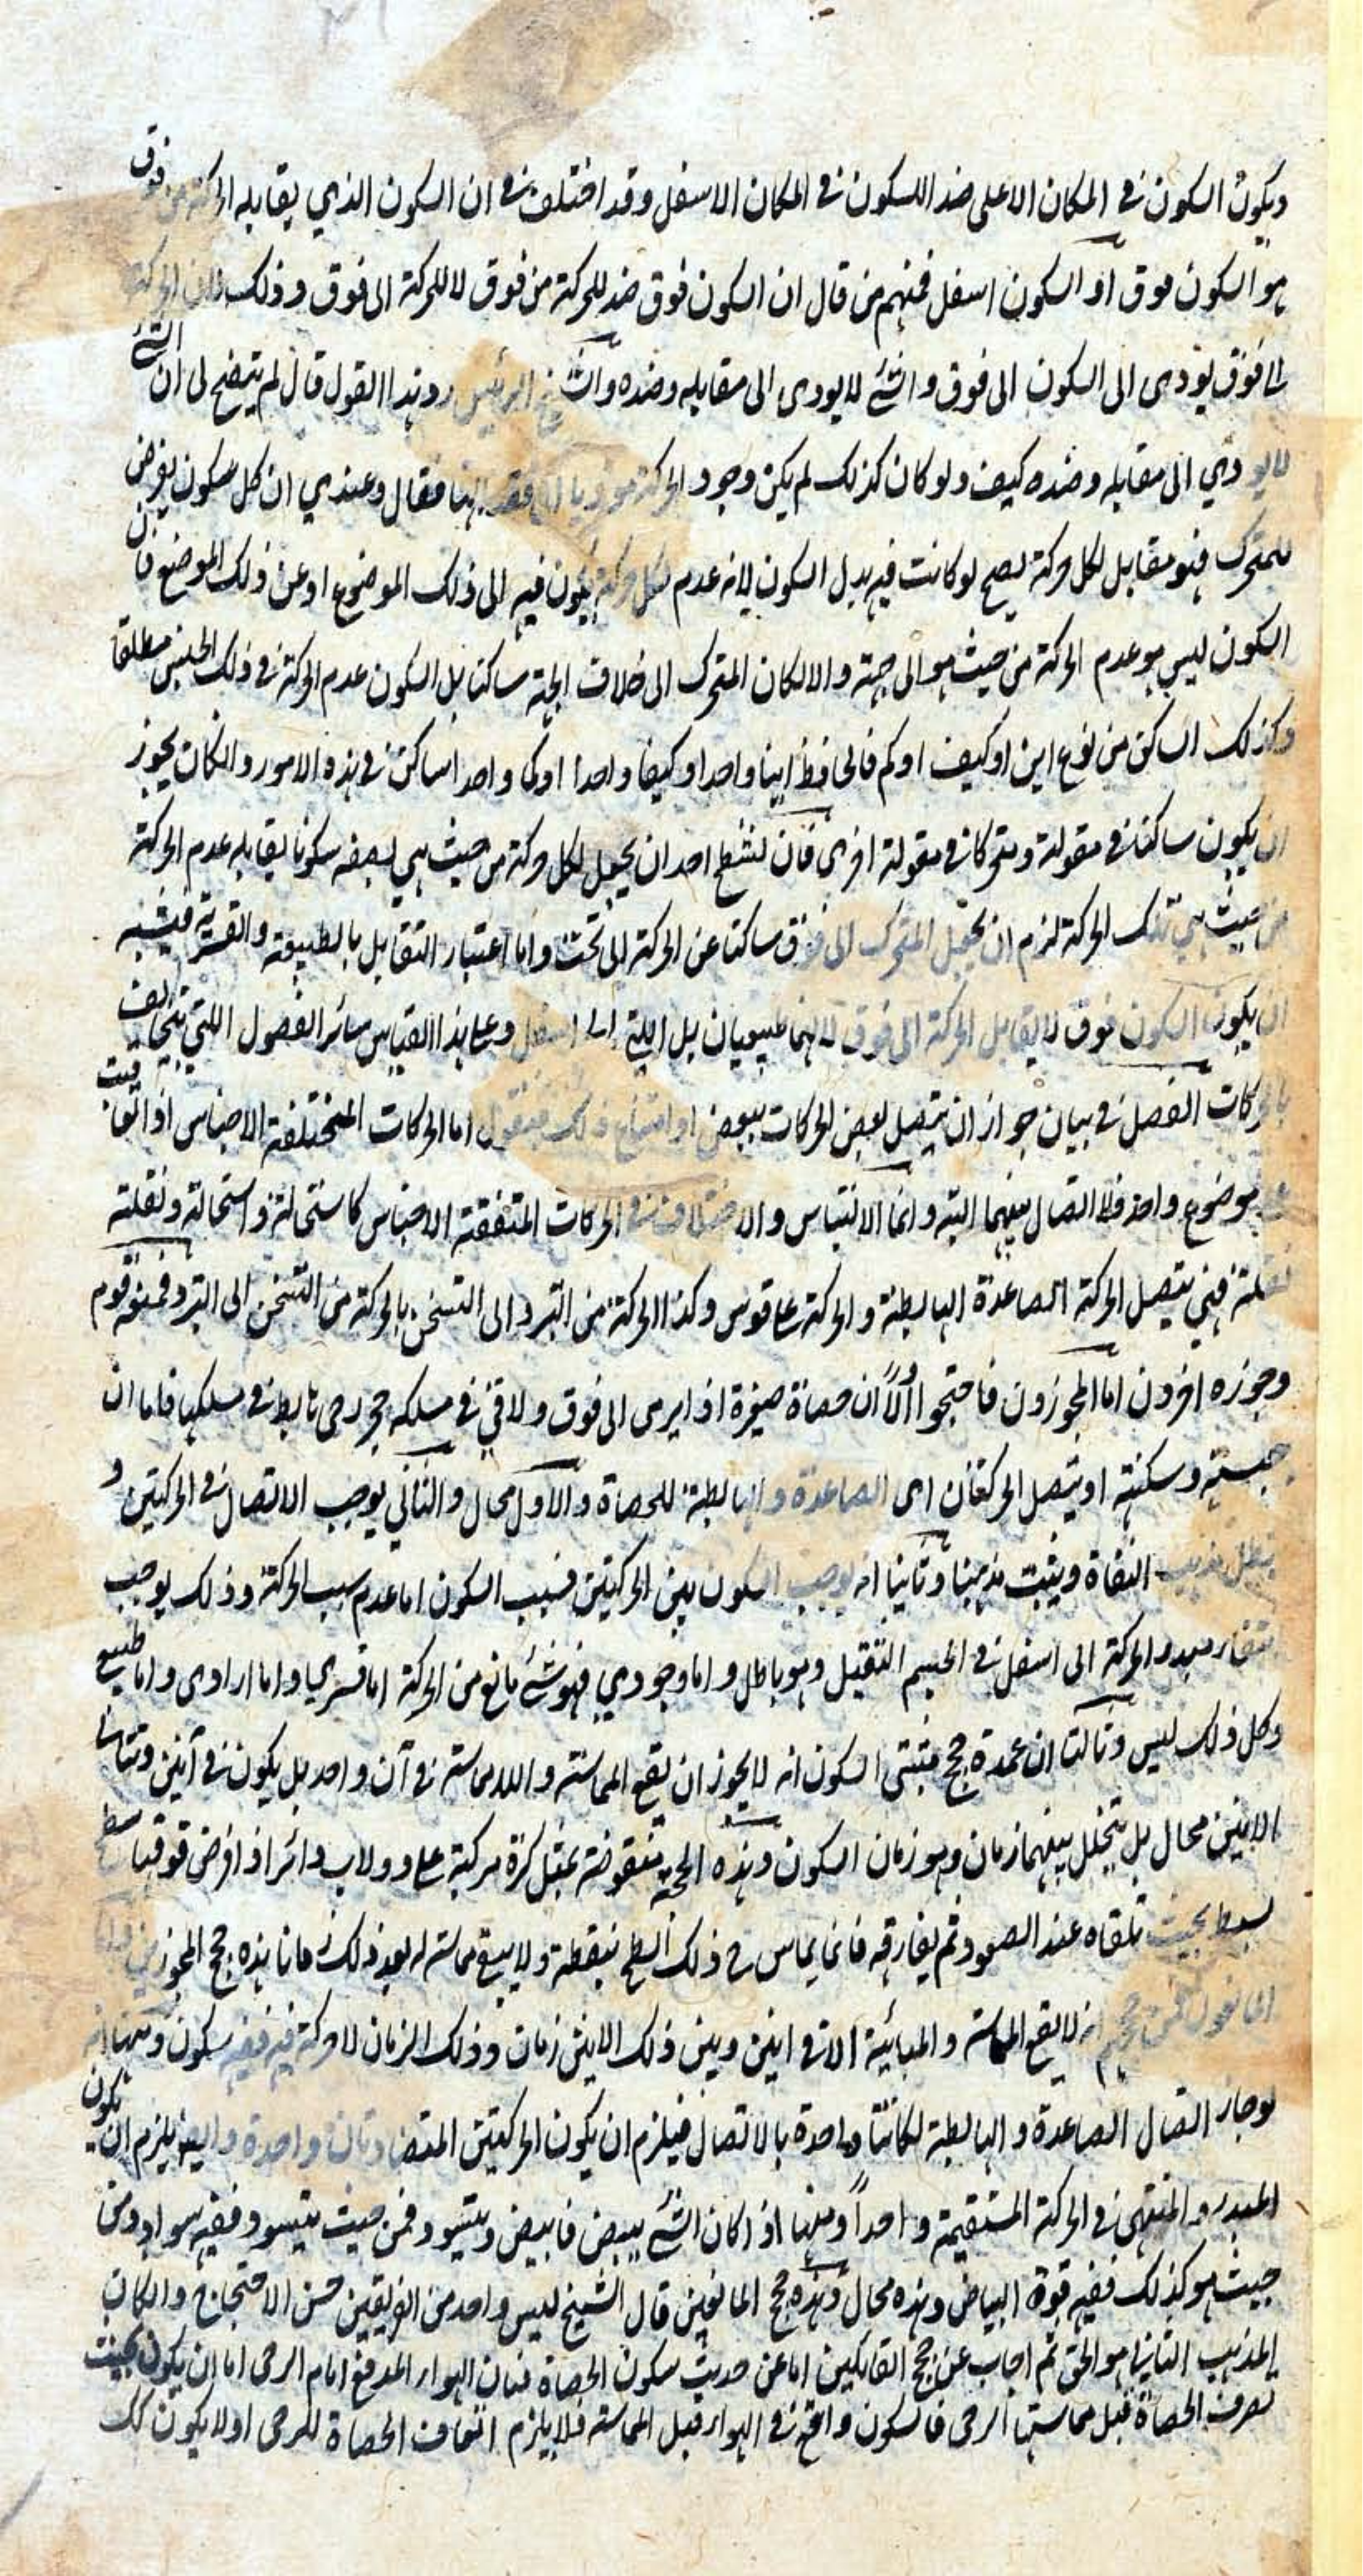 ويكون السكون في المكان الاعلى ضد السكون في المكان الاسفل وقد اختلف في ان السكون الذي يقابله الحركة من فوق
هو السكون فوق او السكون اسفل فمنهم من قال ان السكون فوق ضد للحركة من فوق لا للحركة الى فوق وذلك لان الحركة
الى فوق يودى الى السكون الى فوق والشئ لا يودى الى مقابله وضده والشيخ الرئيس رد هذا القول قال لم يتضح لى ان الشئ
لا يودي الى مقابله وضده كيف ولو كان كذلك لم يكن وجود الحركة موديا الى فقدانها فقال وعندي ان كل سكون يفرض
للمتحرك فهو مقابل لكل حركة يصح لو كانت فيه بدل السكون لانه عدم لكل حركة يكون فيه الى ذلك الموضوع او عن ذلك الموضع فان
السكون ليس هو عدم الحركة من حيث هو الى جهة والا لكان المتحرك الى خلاف الجهة ساكنا بل السكون عدم الحركة في ذلك الجنس مطلقا
وكذلك الساكن من نوع اين او كيف او كم فالحافظ اينا واحدا او كيفا واحدا او كما واحدا ساكن في هذه الامور والكان يجوز
ان يكون ساكنا في مقولة ومتحركا في مقولة اخرى فان نشط احد ان يجعل لكل حركة من حيث هي بصفه سكونا يقابله عدم الحركة
من حيث هي تلك الحركة لزم ان يجعل المتحرك الى فوق ساكنا عن الحركة الى تحت واما اعتبار التقابل بالطبيعة والقسرية فيشبه
ان يكون السكون فوق لا يقابل الحركة الى فوق لانهما طبيعيان بل التي الى اسفل وعلى هذا القياس سائر الفصول اللتي تتخالف
بالحركات الفصل في بيان جواز ان يتصل بعض الحركات ببعض او امتناع ذلك فنقول اما الحركات المختلفة الاجناس اذا تعاقبت
على موضوع واحد فلا اتصال بينهما البتة وانما الالتباس والاختلاف في الحركات المتفقة الاجناس كاستحالة واستحالة ونقلة
ونقلة فهي يتصل الحركة الصاعدة الهابطة والحركة على قوس وكذا الحركة من التبرد الى التسخن بالحركة من التسخن الى التبرد فمنعه قوم
وجوزه اخرون اما المجوزون فاحتجوا اولاً ان حصاة صغيرة اذا يرمى الى فوق ولاقى في مسلكه حجر رحى هابط في مسلكها فاما ان
حبسته وسكنته او يتصل الحركتان اى الصاعدة والهابطة للحصاة والاول محال والثاني يوجب الاتصال في الحركتين و
يبطل مذهب النفاة ويثبت مذهبنا وثانيا انه يوجب السكون بين الحركتين فسبب السكون اما عدم سبب الحركة وذلك يوجب
مبدء الحركة الى اسفل في الجسم الثقيل وهو باطل واما وجودي فهو شئ مانع من الحركة اما قسري واما ارادى واما طبيعي
وكل ذلك ليس وثالثا ان عمدة حجج مثبتى السكون انه لا يجوز ان يقع المماسة واللامماسة في آن واحد بل يكون في آنين وتتالى
الانين محال بل يتخلل بينهما زمان وهو زمان السكون وهذه الحجة منقوضة بمثل كرة مركبة على دولاب دائر اذا فرض فوقها سطح
بسيط بحيث تلقاه عند الصعود ثم يفارقه فانما يماس في ذلك السطح بنقطة ولا يبقى مماسته له بعد ذلك فهذه حجج المجوزين
انه لا يقع المماسة والمباينة الا في انين وبين ذلك الانين زمان وذلك الزمان لا حركة فيه ففيه سكون ومنها انه
لو جاز اتصال الصاعدة والهابطة لكانتا واحدة بالاتصال فيلزم ان يكون الحركتين المتضادتان واحدة وايضا يلزم ان يكون
المبدء والمنتهى في الحركة المستقيمة واحداً ومنها اذا كان الشئ يبيض فابيض ويتسود فمن حيث يتسود ففيه سواد ومن
حيث هو كذلك ففيه قوة البياض وهذه محال وهذه حجج المانعين قال الشيخ ليس واحد من الفريقين حسن الاحتجاج والكان
المذهب الثاني هو الحق ثم اجاب عن حجج القائلين اما عن حديث سكون الحصاة فبان الهواء المدفع امام الرحى اما ان يكون بحيث
تصرف الحصاة قبل مماستها الرحى فالسكون واقع في الهواء قبل المماسة فلا يلزم اتفاف الحصاة للرحى اولا يكون كك